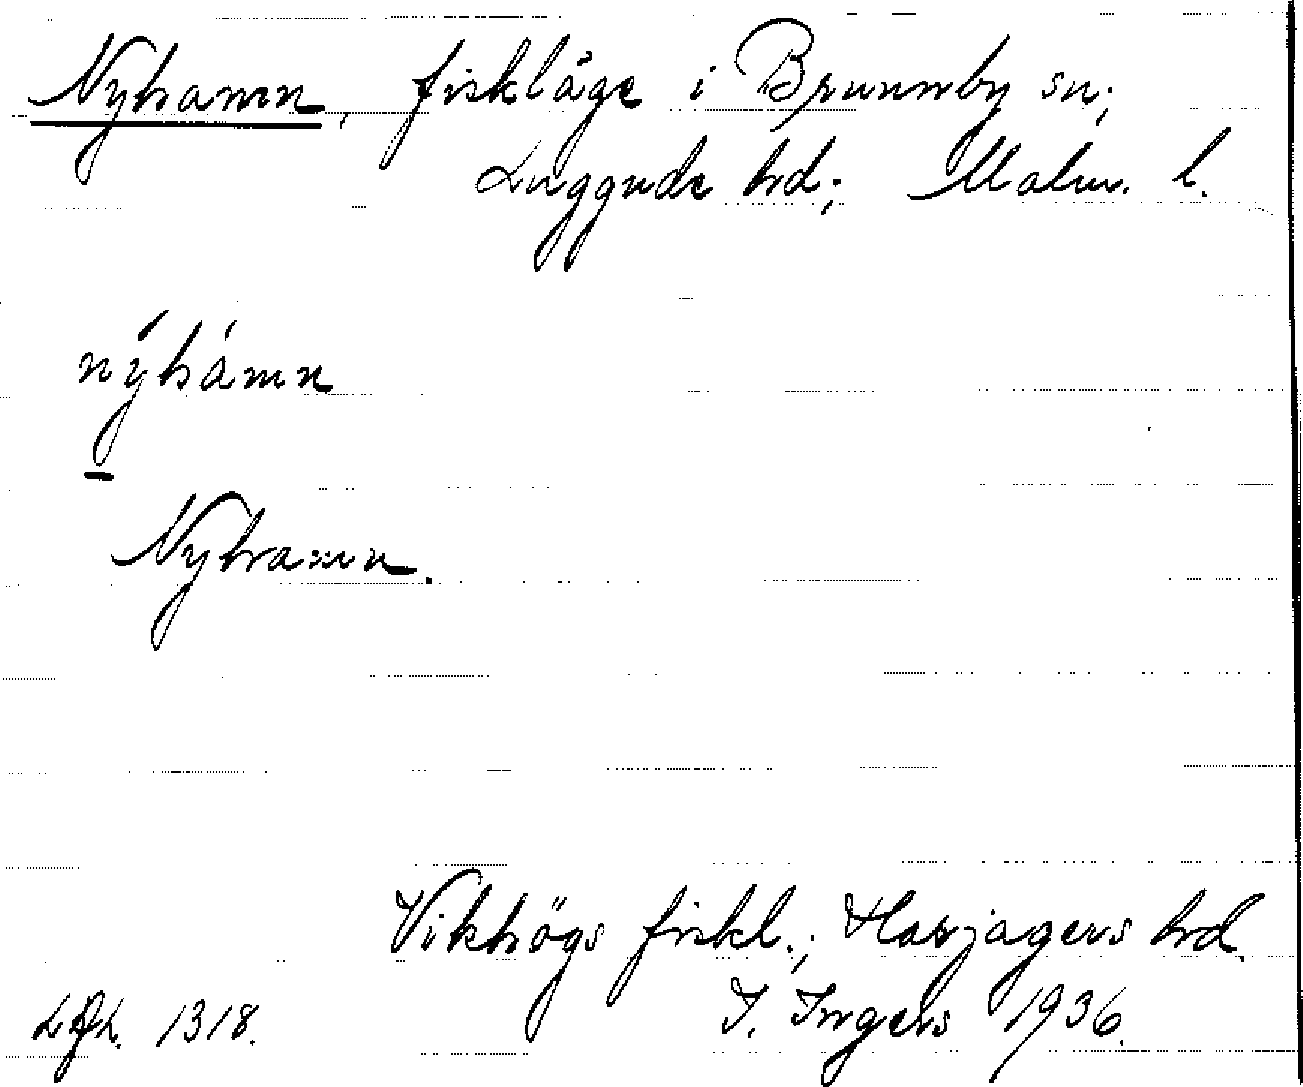 Nyhamn, fiskläge i Brunnby sn;
Luggude hd; Malm. l.
nýhámn
Nyhamn.
Vikhögs fiskl.; Harjagers hd.
I. Ingers 1936.
1318.